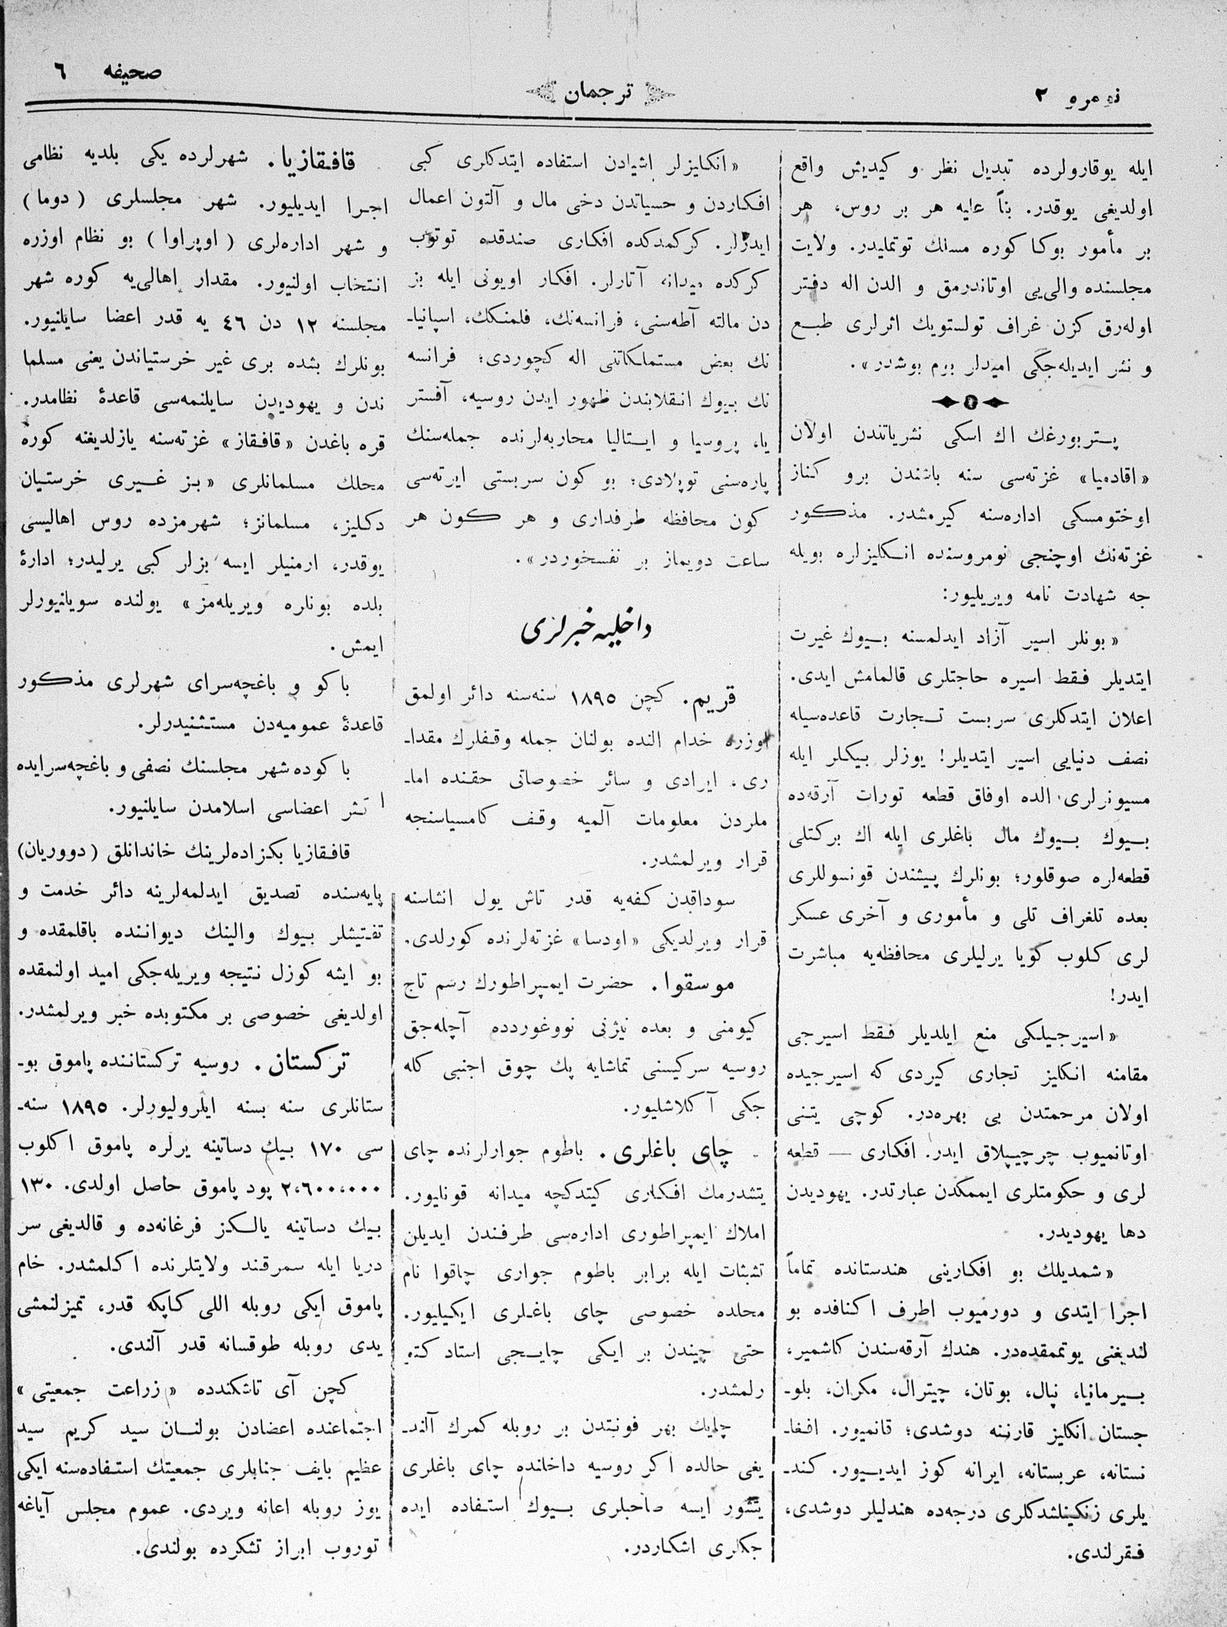 نومرو ٢
ترجمان
صحيفه ٦
ايله يوقارولرده تبديل نظر و كيديش واقع
اولديغى يوقدر. بناً عليه هر بر روس، هر
بر مأمور بوكا كوره مسلك توتمليدر. ولايت
مجلسنده والى‌يى اوتاندرمق و الدن اله دفتر
اوله‌رق كزن غراف تولستويك اثرلرى طبع
و نشر ايديله‌جكى اميدلر بوم بوشدر».
پتربورغك اك اسكى نشرياتندن اولان
«اقادميا» غزته‌سى سنه باشندن برو كناز
اوختومسكى اداره‌سنه كيرمشدر. مذكور
غزته‌نك اوچنجى نومروسنده انكليزلره بويله
جه شهادت نامه ويريليور:
«بونلر اسير آزاد ايدلمسنه بيوك غيرت
ايتديلر فقط اسيره حاجتلرى قالمامش ايدى.
اعلان ايتدكلرى سربست تجارت قاعده‌سيله
نصف دنيايى اسير ايتديلر! يوزلر بيكلر ايله
مسيونرلرى الده اوفاق قطعه تورات آرقه‌ده
بيوك بيوك مال باغلرى ايله اك بركتلى
قطعه‌لره صوقلور؛ بونلرك پيشندن قونسوللرى
بعده تلغراف تلى و مأمورى و آخرى عسكر
لرى كلوب كويا يرليلرى محافظه‌يه مباشرت
ايدر!
«اسيرجيلكى منع ايلديلر فقط اسيرجى
مقامنه انكليز تجارى كيردى كه اسيرجيده
اولان مرحمتدن بى بهره‌در. كوچى يتنى
اوتانميوب چرچيپلاق ايدر. افكارى — قطعه
لرى و حكومتلرى ايممكدن عبارتدر. يهوديدن
دها يهوديدر.
«شمديلك بو افكارينى هندستانده تماماً
اجرا ايتدى و دورميوب اطرف اكنافده بو
لنديغنى يوتمقده‌در. هندك آرقه‌سندن كاشمير،
بيرمانيا، نپال، بوتان، چيترال، مكران، بلو-
جستان انكليز قارننه دوشدى؛ قانميور. افغا-
نستانه، عربستانه، ايرانه كوز ايديور. كند-
يلرى زنكينلشدكلرى درجه‌ده هندليلر دوشدى،
فقرلندى.
«انكليزلر اشيادن استفاده ايتدكلرى كبى
افكاردن و حسياتدن دخى مال و آلتون اعمال
ايدرلر. كركمدكده افكارى صندقده توتوب
كركده ميدانه آتارلر. افكار اويونى ايله بز
دن مالته آطه‌سنى، فرانسه‌نك، فلمنكك، اسپانيا-
نك بعض مستملكاتنى اله كچوردى؛ فرانسه
نك بيوك انقلابندن ظهور ايدن روسيه، آفستر
يا، پروسيا و ايستاليا محاربه‌لرنده جمله‌سنك
پاره‌سنى توپلادى؛ بو كون سربستى ايرته‌سى
كون محافظه طرفدارى و هر كون هر
ساعت دويماز بر نفسخوردر».
داخليه خبرلرى
قريم. كچن ١٨٩٥ سنه‌سنه دائر اولمق
اوزره خدام النده بولنان جمله وقفلرك مقدا-
رى، ايرادى و سائر خصوصاتى حقنده اما-
ملردن معلومات آلميه وقف كامسياسنجه
قرار ويرلمشدر.
سوداقدن كفه‌يه قدر تاش يول انشاسنه
قرار ويرلديكى «اودسا» غزته‌لرنده كورلدى.
موسقوا. حضرت ايمپراطورك رسم تاج
كيومنى و بعده نيژنى نووغوردده آچله‌جق
روسيه سركيسنى تماشايه پك چوق اجنبى كله
جكى آكلاشليور.
چاى باغلرى. باطوم جوارلرنده چاى
يتشدرمك افكارى كيتدكچه ميدانه قونليور.
املاك ايمپراطورى اداره‌سى طرفندن ايديلن
تشبثات ايله برابر باطوم جوارى چاقوا نام
محلده خصوصى چاى باغلرى ايكيليور.
حتى چيندن بر ايكى چايجى استاد كتو
رلمشدر.
چايك بهر فونتدن بر روبله كمرك آلند-
يغى حالده اكر روسيه داخلنده چاى باغلرى
يتشور ايسه صاحبلرى بيوك استفاده ايده
جكلرى اشكاردر.
قافقازيا. شهرلرده يكى بلديه نظامى
اجرا ايديليور. شهر مجلسلرى (دوما)
و شهر اداره‌لرى (اوپراوا) بو نظام اوزره
انتخاب اولنيور. مقدار اهالى‌يه كوره شهر
مجلسنه ١٢ دن ٤٦ يه قدر اعضا سايلنيور.
بونلرك بشده برى غير خرستياندن يعنى مسلما
ندن و يهوديدن سايلنمه‌سى قاعدۀ نظامدر.
قره باغدن «قافقاز» غزته‌سنه يازلديغنه كوره
محلك مسلمانلرى «بز غيرى خرستيان
دكليز، مسلمانز؛ شهرمزده روس اهاليسى
يوقدر، ارمنيلر ايسه بزلر كبى يرليدر؛ ادارۀ
بلده بونلره ويريله‌مز» يولنده سويلنيورلر
ايمش.
باكو و باغچه‌سراى شهرلرى مذكور
قاعدۀ عموميه‌دن مستثنيدرلر.
باكوده شهر مجلسنك نصفى و باغچه‌سرايده
اكثر اعضاسى اسلامدن سايلنيور.
قافقازيا بكزاده‌لرينك خاندانلق (دووريان)
پايه‌سنده تصديق ايدلمه‌لرينه دائر خدمت و
تفتيشلر بيوك والينك ديواننده باقلمقده و
بو ايشه كوزل نتيجه ويريله‌جكى اميد اولنمقده
اولديغى خصوصى بر مكتوبده خبر ويرلمشدر.
تركستان. روسيه تركستاننده پاموق بو-
ستانلرى سنه بسنه ايلروليورلر. ١٨٩٥ سنه-
سى ١٧٠ بيك دساتينه يرلره پاموق اكلوب
٢،٦٠٠،٠٠٠ پود پاموق حاصل اولدى. ١٣٠
بيك دساتينه يالكز فرغانه‌ده و قالديغى سر
دريا ايله سمرقند ولايتلرنده اكلمشدر. خام
پاموق ايكى روبله اللى كاپكه قدر، تميزلنمشى
يدى روبله طوقسانه قدر آلندى.
كچن آى تاشكندده «زراعت جمعيتى»
اجتماعنده اعضادن بولنان سيد كريم سيد
عظيم بايف جنابلرى جمعيتك استفاده‌سنه ايكى
يوز روبله اعانه ويردى. عموم مجلس آياغه
توروب ابراز تشكرده بولندى.